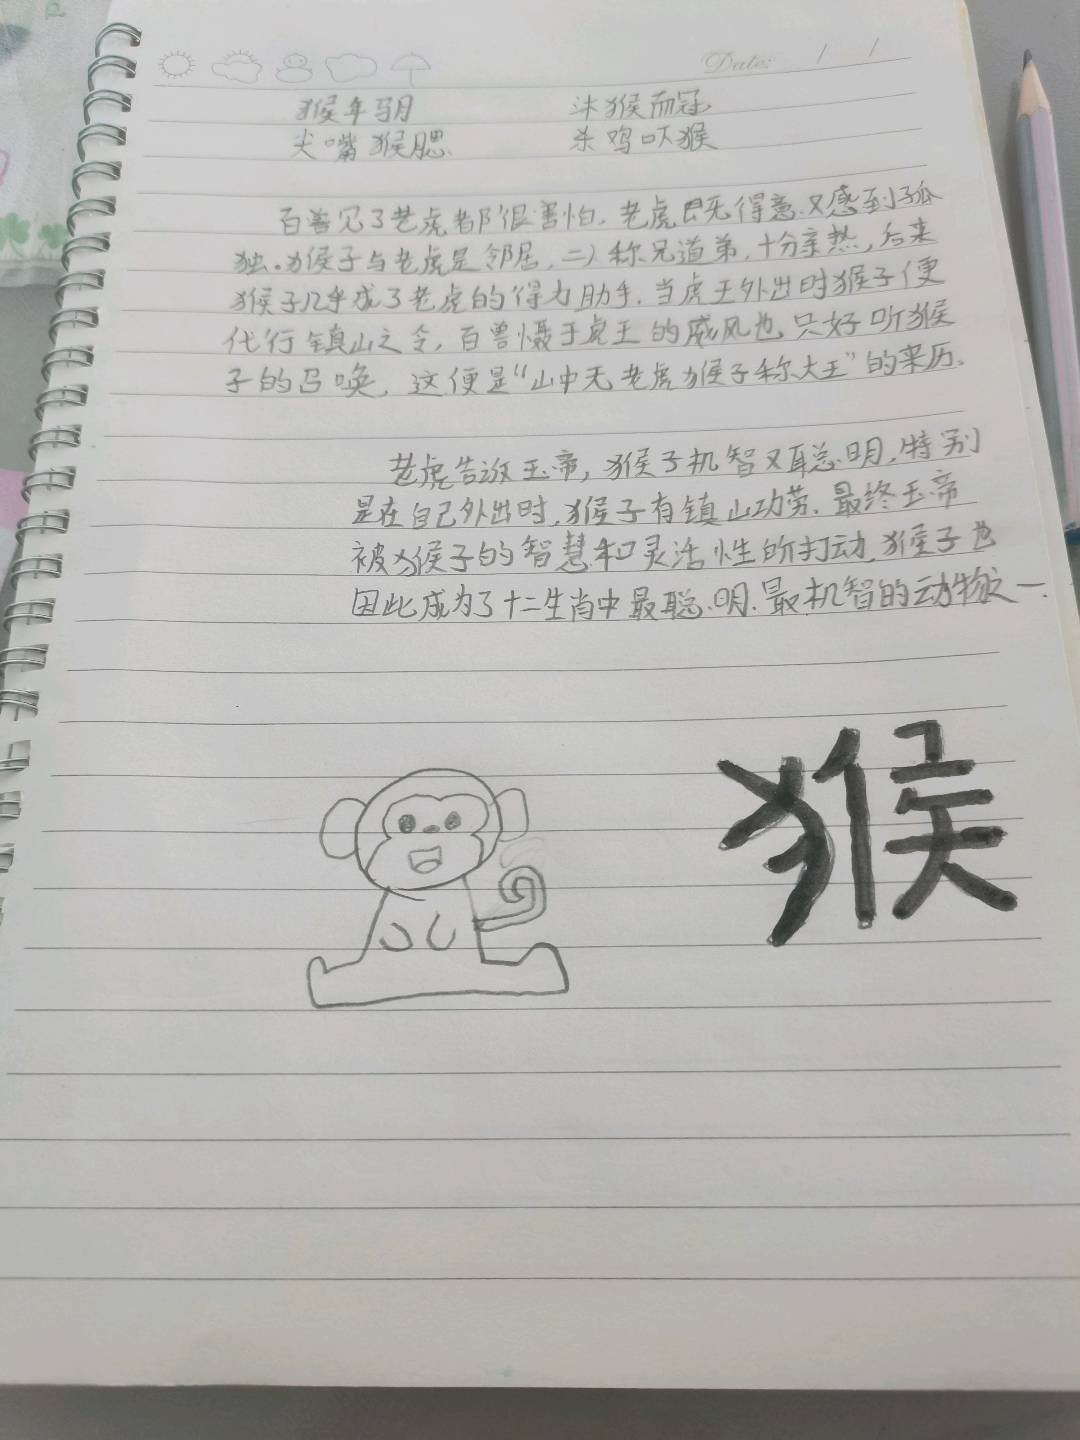 Date: / /
猴年马月 沐猴而冠
尖嘴猴腮 杀鸡吓猴
百兽见了老虎都很害怕,老虎既无得意又感到孤
独。猴子与老虎是邻居,二人称兄道弟,十分亲热,后来
猴子几乎成了老虎的得力助手,当虎王外出时猴子便
代行镇山之令,百兽慑于虎王的威风也只好听猴
子的召唤,这便是“山中无老虎猴子称大王”的来历。
老虎告诉玉帝,猴子机智又聪明,特别
是在自己外出时,猴子有镇山功劳.最终玉帝
被猴子的智慧和灵活性所打动,猴子也
因此成为了十二生肖中最聪明.最机智的动物之一.
猴